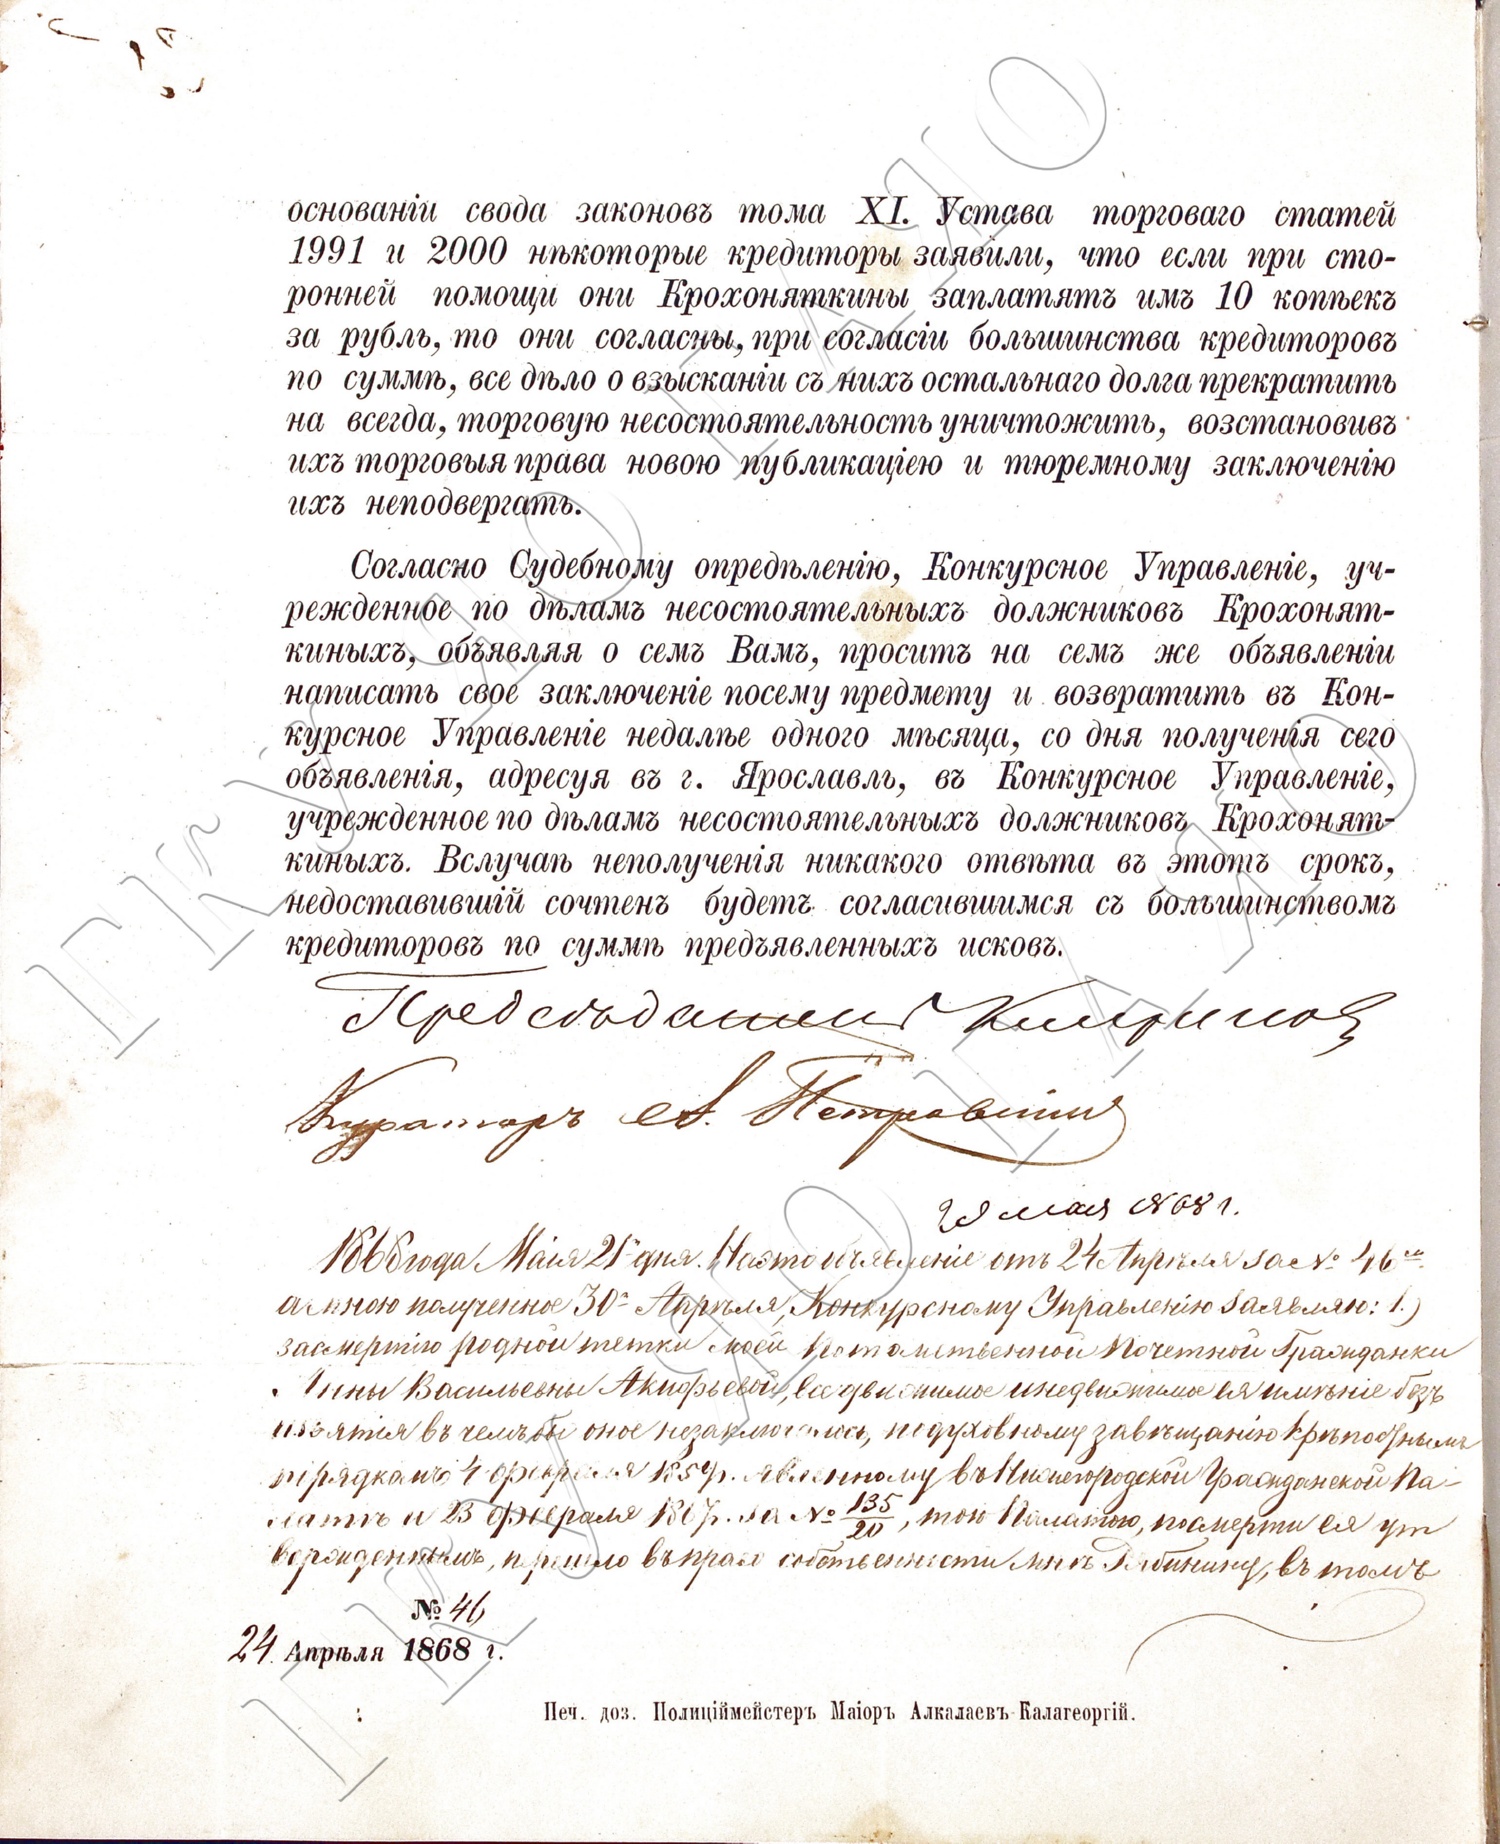 основаніи свода законовъ тома XI. Устава торговаго статей
1991 и 2000 нѣкоторые кредиторы заявили, что если при сто-
ронней помощи они Крохоняткины заплатятъ имъ 10 копѣекъ
за рубль, то они согласны, при согласіи большинства кредиторовъ
по суммѣ, все дѣло о взысканіи съ нихъ остальнаго долга прекратить
на всегда, торговую несостоятельность уничтожить, возстановивъ
ихъ торговыя права новою публикаціею и тюремному заключенію
ихъ неподвергать.
Согласно Судебному опредѣленію, Конкурсное Управленіе, уч-
режденное по дѣламъ несостоятельныхъ должниковъ Крохонят-
киныхъ, объявляя о семъ Вамъ, проситъ на семъ же объявленіи
написать свое заключеніе посему предмету и возвратить въ Кон-
курсное Управленіе недалѣе одного мѣсяца, со дня полученія сего
объявленія, адресуя въ г. Ярославль, въ Конкурсное Управленіе,
учрежденное по дѣламъ несостоятельныхъ должниковъ Крохонят-
киныхъ. Вслучаѣ неполученія никакого отвѣта въ этотъ срокъ,
недоставившій сочтенъ будетъ согласившимся съ большинствомъ
кредиторовъ по суммѣ предъявленныхъ исковъ.
Предсѣдатель
Кураторъ А. Петровскій
мая 1868 г.
1868 года Маія 21 дня. На это объявленіе отъ 24 Апрѣля за № 46
мною полученное 30 Апрѣля, Конкурсному Управленію заявляю: 1.)
засмертію родной тетки моей Потомственной Почетной Гражданки
Анны Васильевны Акифьевой, все движимое инедвижимое ея имѣніе безъ
изъятія въ чемъбы оное незаключалось, подуховному завѣщанію крѣпостнымъ
порядкомъ 4 февраля 1859 г. явленному въ Нижегородской Гражданской Па-
латѣ и 23 февраля 1867 г. за № 135/20, тою Палатою, посмерти ея ут
вержденнымъ, прешло въ право собственности мнѣ Рябинину, въ томъ
№ 46
24 Апрѣля 1868 г.
Печ. доз. Полиціймейстеръ Маіоръ Алкалаевъ-Калагеоргій.